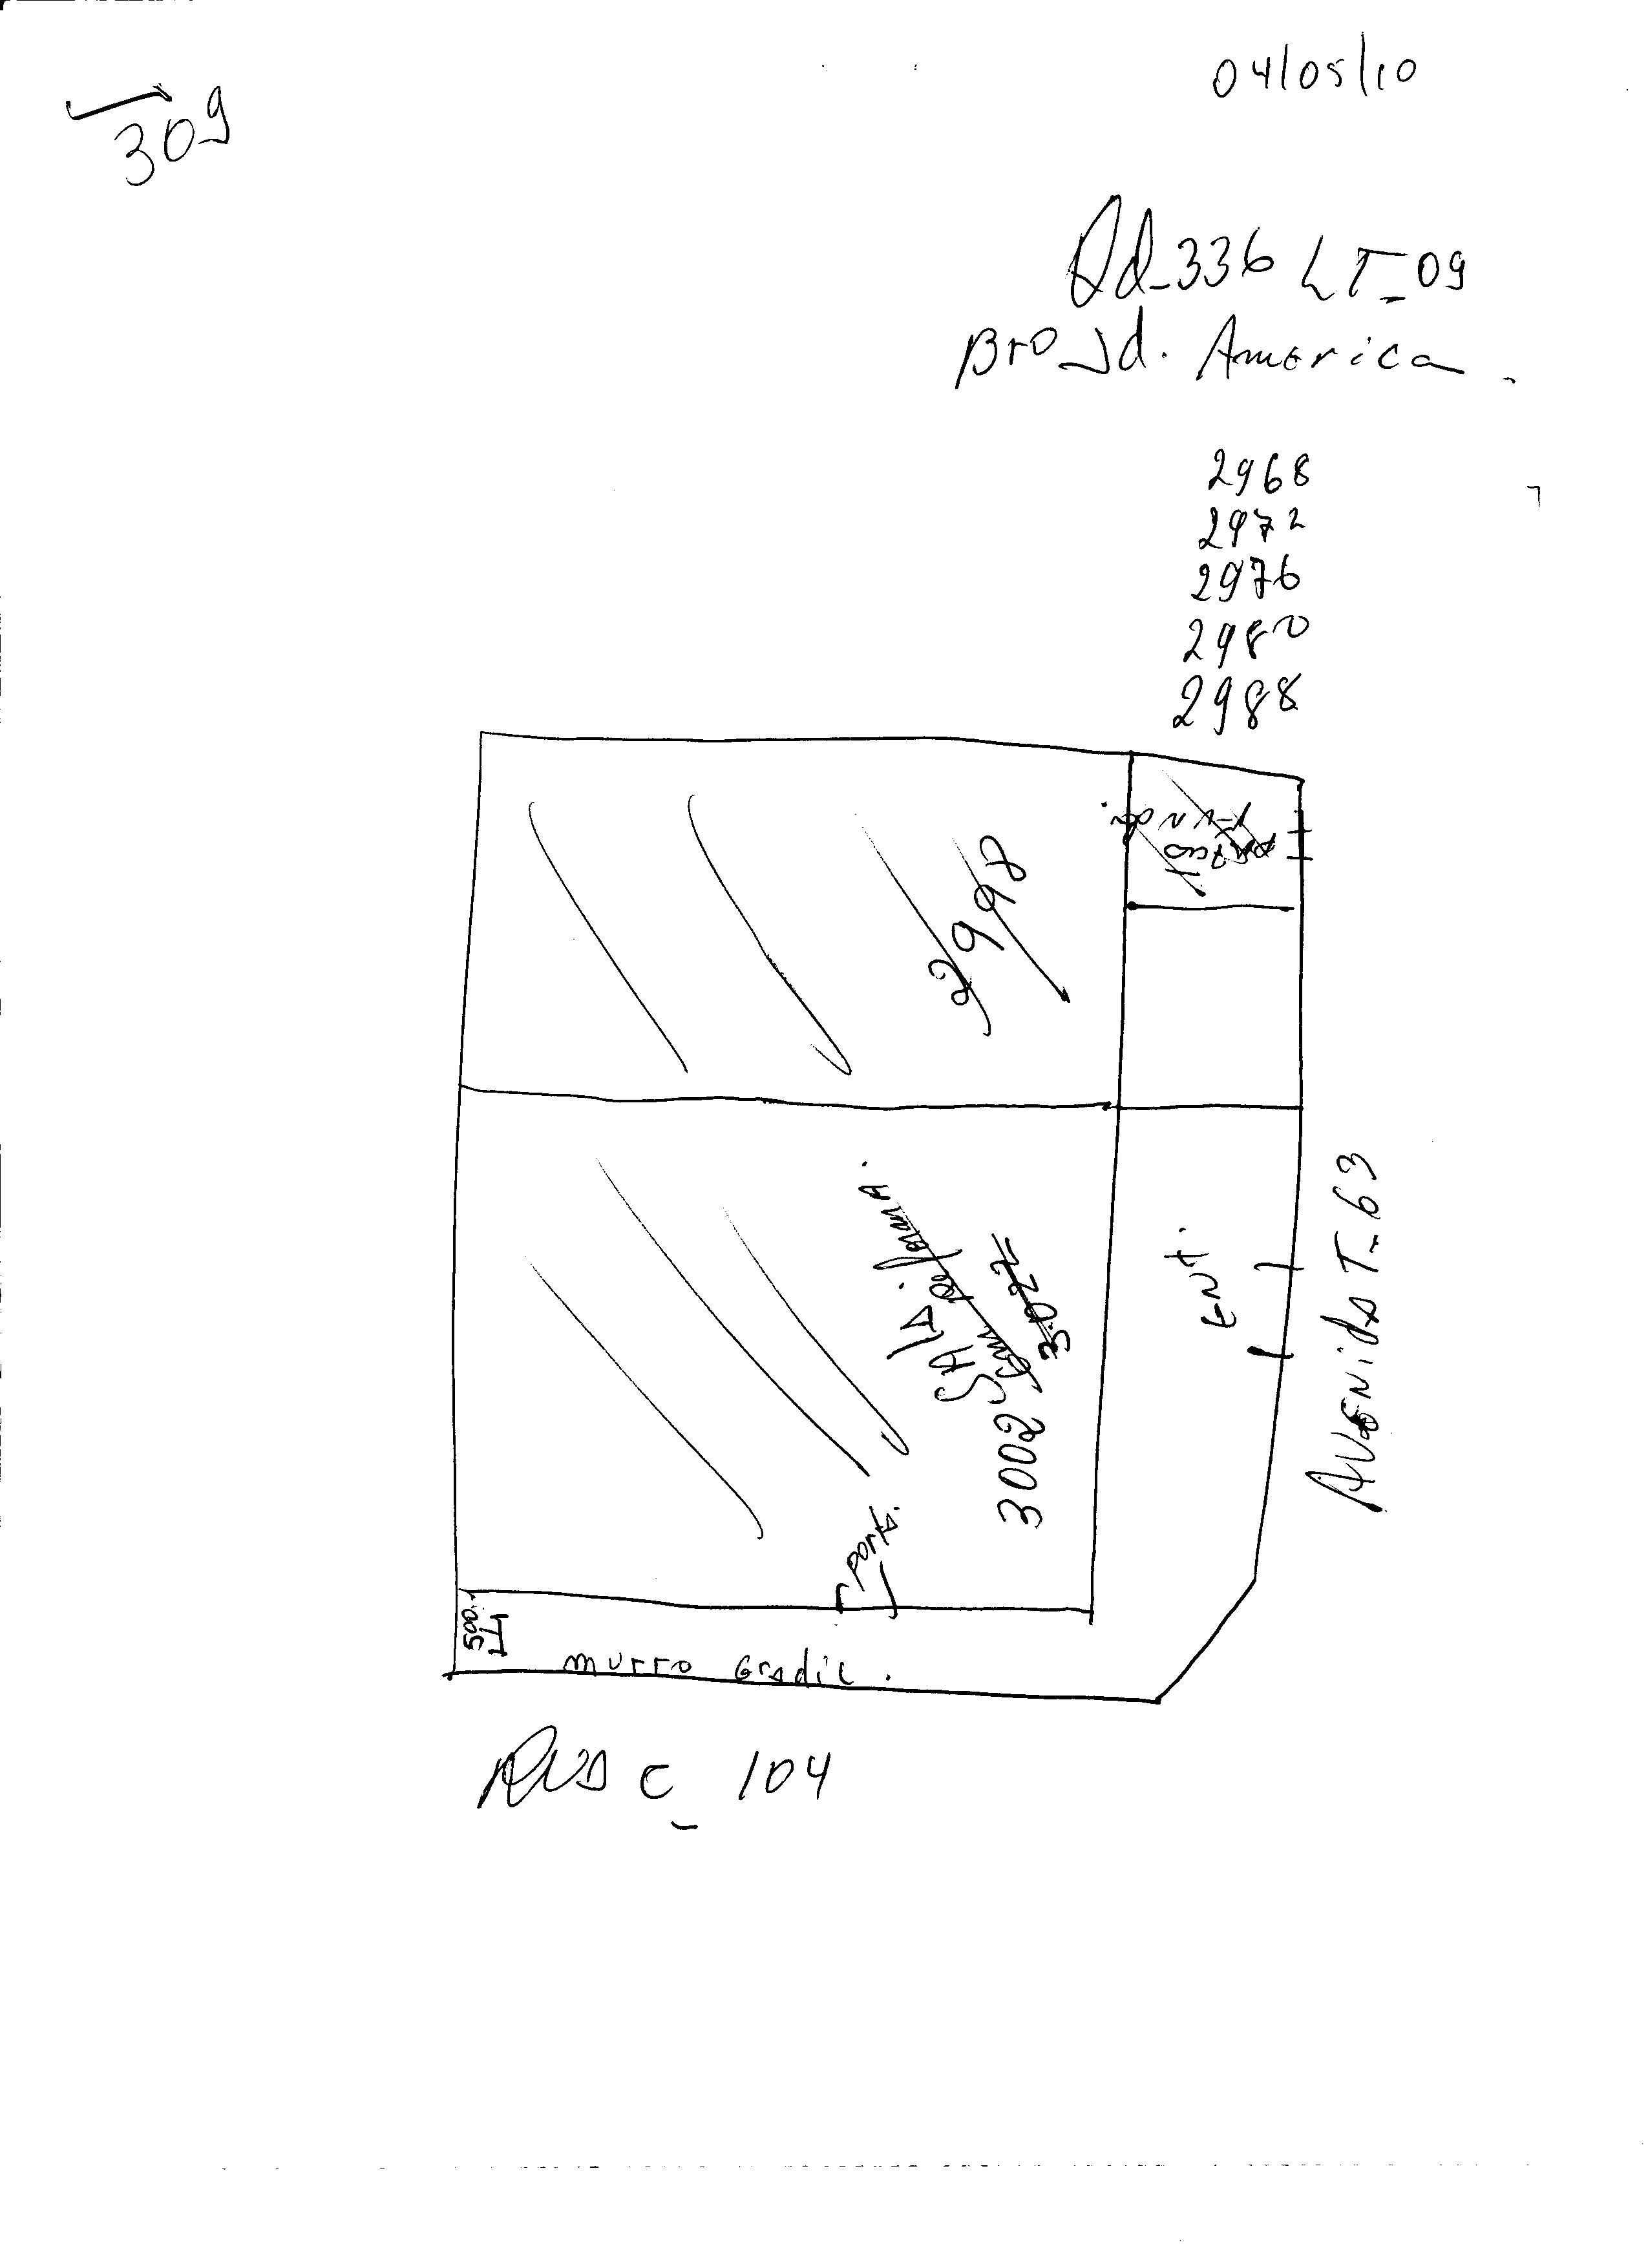 04/05/10
309
Qd_336 LT_09
Bro Jd. America.
2968
2972
2976
2980
2988
2998
SALA
3002
3.022
Ent.
Avenida T_63
porta.
500.
murro Gradil.
Rua C_104